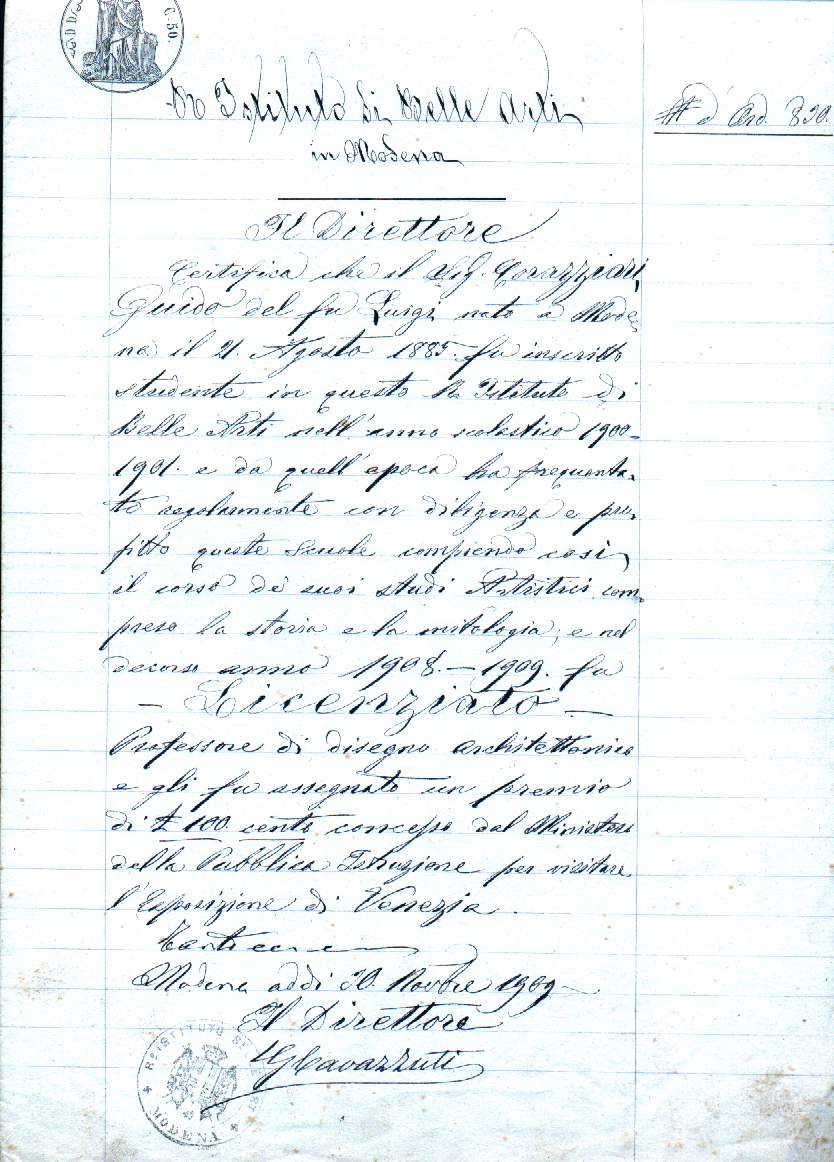 C. 50.
R Istituto di Belle Arti
in Modena
N d' Ord. 830.
Il Direttore
Certifica che il Sig. Corazziari
Guido del fu Luigi nato a Mode-
na il 21. Agosto 1885. fu inscritto
studente in questo R. Istituto di
Belle Arti nell' anno scolastico 1900-
1901. e da quell' epoca ha frequenta-
to regolarmente con diligenza e pro-
fitto queste scuole compiendo così
il corso de' suoi studi Artistici, com-
preso la storia e la mitologia; e nel
decorso anno 1908. — 1909. fu
— Licenziato —
Professore di disegno architettonico
e gli fu assegnato un premio
di £ 100. cento concesso dal Ministero
della Pubblica Istruzione per visitare
l'Esposizione di Venezia.
Modena addi 30. Novbre 1909—
Il Direttore
GCavazzuti
R. ISTITUTO BELLE ARTI
MODENA